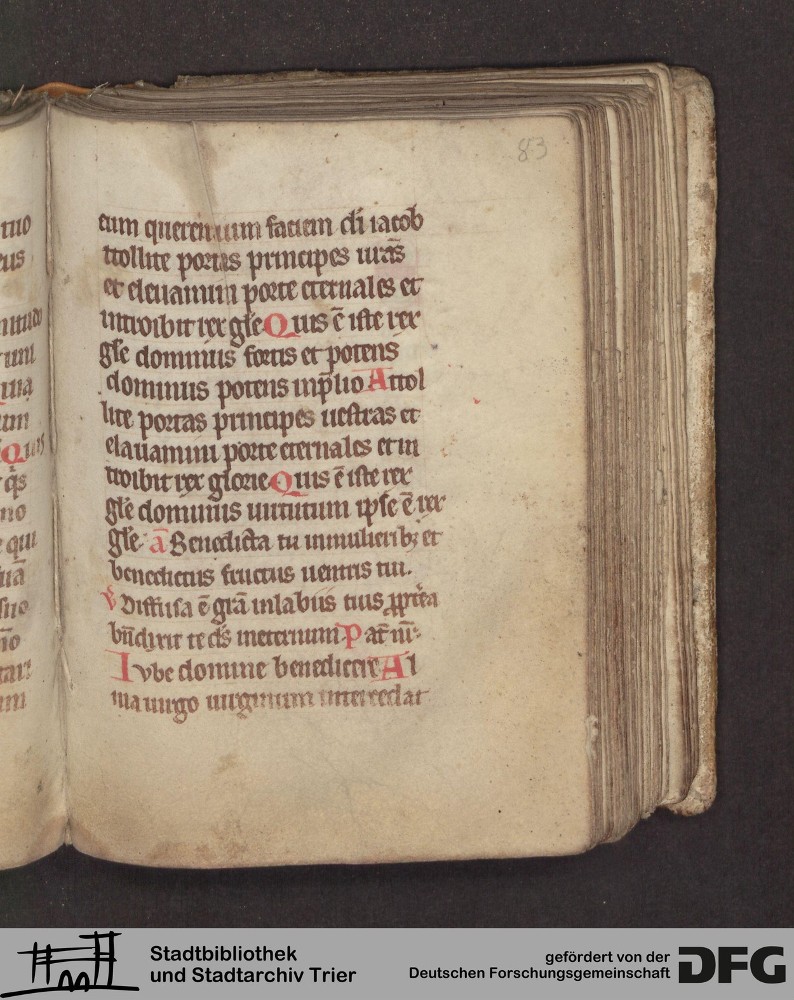 83
eum querentium faciem di iacob
ttollite portas principes ur̃as
et eleuamini porte eternales et
introibit rex gl̃e Quis ē iste rex
gl̃e dominus fortis et potens
dominus potens in p̃lio Attol
lite portas principes uestras et
elauamini porte eternales et in
troibit rex glorie Quis ē iste rex
gl̃e dominus uirtutum ipse ē rex
gl̃e. ā Benedicta tu in mulieribꝫ et
benedictus fructus uentris tui.
v̄ Diffusa ē grã in labiis tuis
bñdixit te ds̃ in eternum Pat̄ nr̄
Iube domine benedicere Al
ma uirgo uirginum intercedat
tuo
eus
Quis
q̃s
no
e qui
suo
Stadtbibliothek
und Stadtarchiv Trier
gefördert von der
Deutschen Forschungsgemeinschaft
DFG